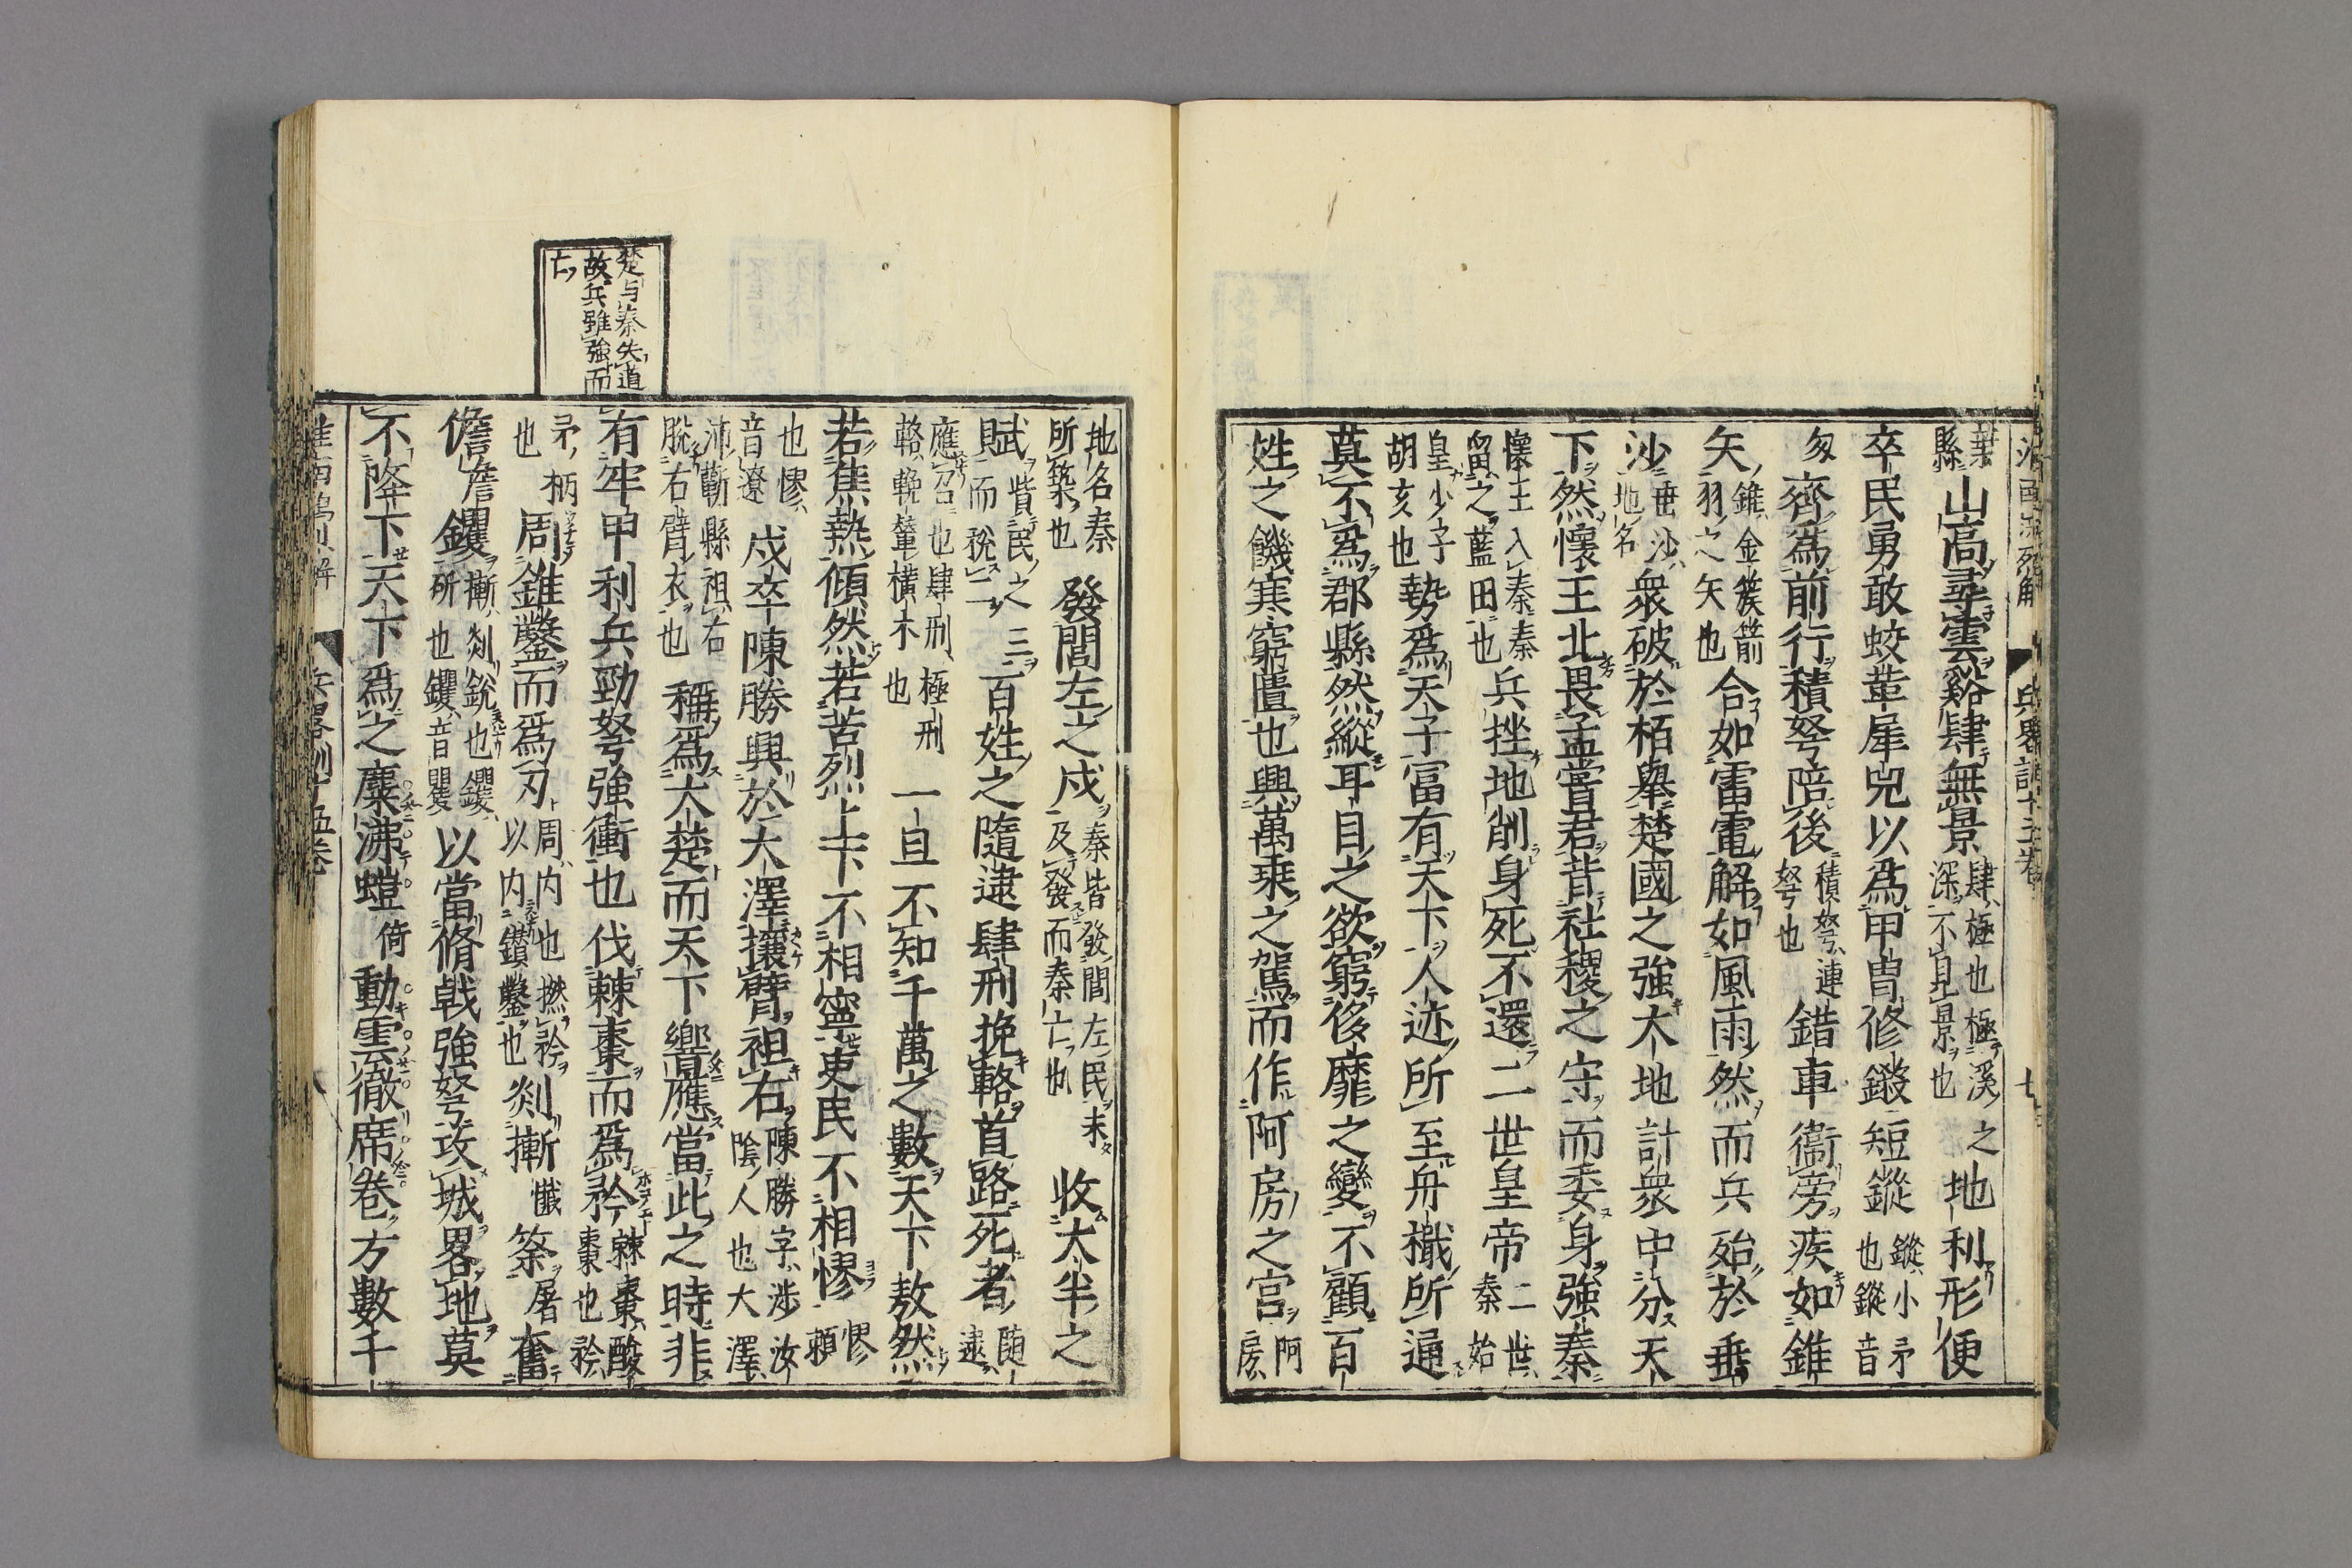 葉縣山高尋雲谿肆無景肆極也極溪之深不見景也地利形便
卒民勇敢蛟革犀兕以爲甲胄修鎩短鏦鏦小矛也鏦音
匆齊爲前行積弩陪後積弩連弩也錯車衞旁疾如錐
矢錐金簇箭羽之矢也合如雷電解如風雨然而兵殆於垂
沙垂沙地名衆破於栢舉楚國之強大地計衆中分天
下然懷王北畏孟嘗君背社稷之守而委身強秦
懷王入秦秦留之藍田也兵挫地削身死不還二世皇帝二世秦始
皇少子胡亥也勢爲天子冨有天下人迹所至舟檝所通
莫不爲郡縣然縱耳目之欲窮侈靡之變不顧百
姓之饑寒窮匱也興萬乘之駕而作阿房之宮阿房
地名秦所築也發閭左之戍秦皆發閭左民未及發而秦亡也收太半之
賦貲民之三而稅二百姓之隨逮肆刑挽輅首路死者随逮
應召也肆刑極刑輅輓輦橫木也一旦不知千萬之數天下敖然
若焦熱傾然若苦烈上下不相寧吏民不相憀憀頼
也憀音遼戍卒陳勝興於大澤攘臂袒右陳勝字渉汝陰人也大澤
沛蘄縣袒右脫右臂衣也稱爲大楚而天下響應當此之時非
有牢甲利兵勁弩強衝也伐棘棗而爲矜棘棗酸棗也矜
矛柄也周錐鑿而爲刃周内也撚矜以内鑚鑿也剡摲懺筡屠奮
儋儋钁摲剡銳也钁斫也钁音矍以當脩戟強弩攻城畧地莫
不降下天下爲之麋沸螘倚動雲徹席卷方數千
楚与秦失道
故兵雖強而
亡